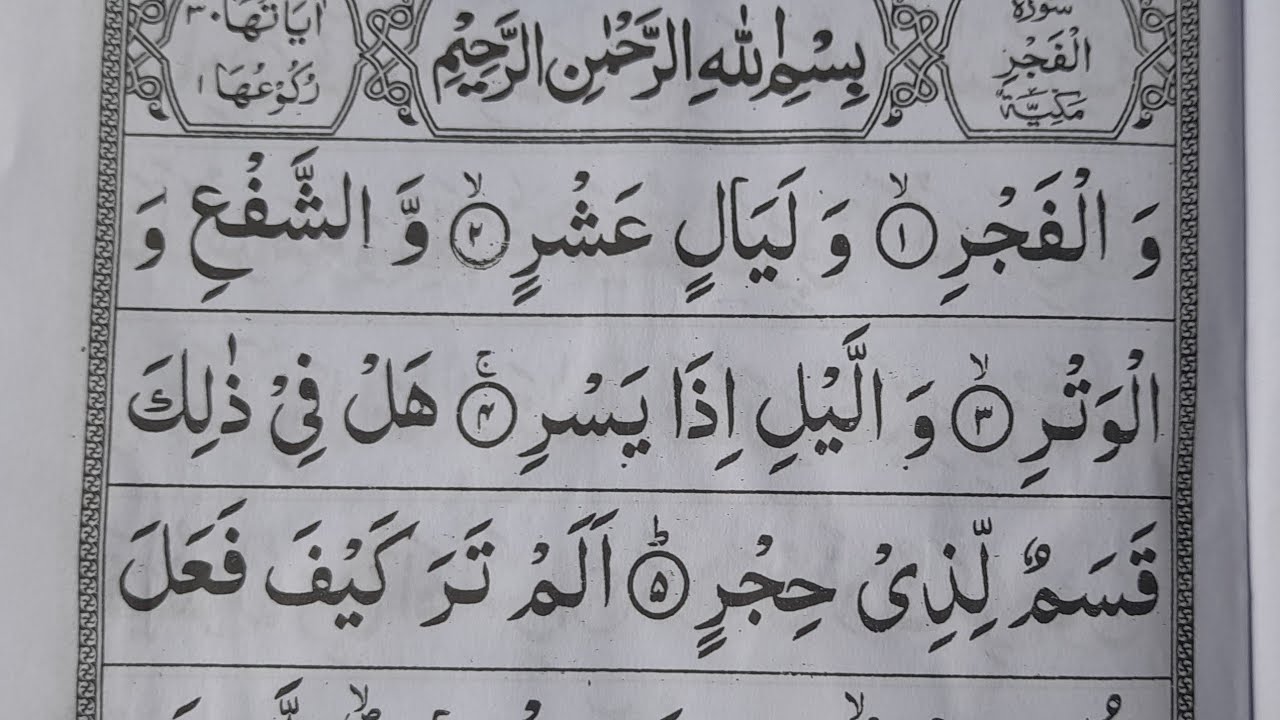 سورة الفجر مكية
بِسْمِ اللّٰهِ الرَّحْمٰنِ الرَّحِيْمِ
اٰيَاتُهَا ٣٠ رُكُوْعُهَا ١
وَ الْفَجْرِ ۙ﴿١﴾ وَ لَيَالٍ عَشْرٍ ۙ﴿٢﴾ وَّ الشَّفْعِ وَ
الْوَتْرِ ۙ﴿٣﴾ وَ الَّيْلِ اِذَا يَسْرِ ۚ﴿٤﴾ هَلْ فِيْ ذٰلِكَ
قَسَمٌ لِّذِيْ حِجْرٍ ؕ﴿٥﴾ اَلَمْ تَرَ كَيْفَ فَعَلَ